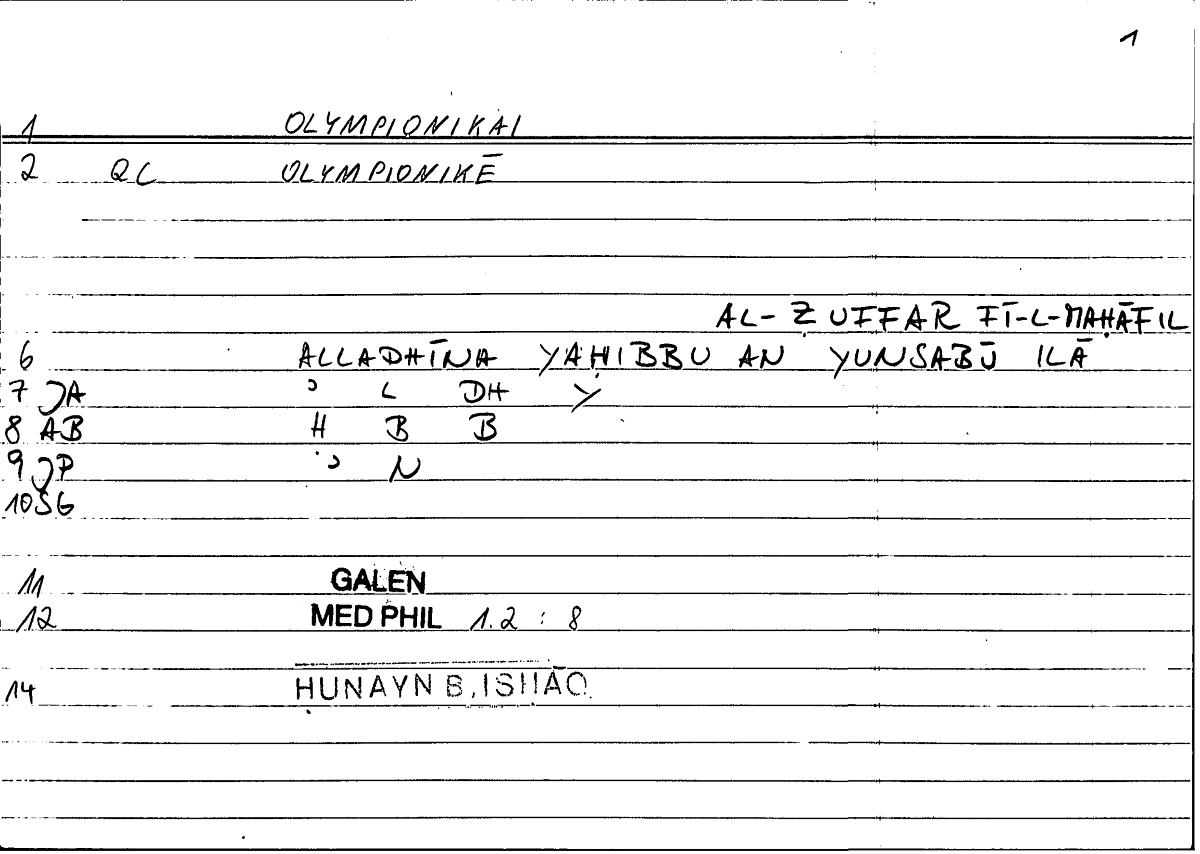 1
1 OLYMPIONIKAI
2 QC OLYMPIONIKĒ
AL-ẒUFFAR FĪ-L-MAḤĀFIL
6 ALLADHĪNA YAḤIBBU AN YUNSABŪ ILĀ
7 JA ʾ L DH Y
8 AB H B B
9 JP ʾ N
10 SG
11 GALEN
12 MED PHIL 1.2 : 8
14 ḤUNAYN B. ISḤĀQ